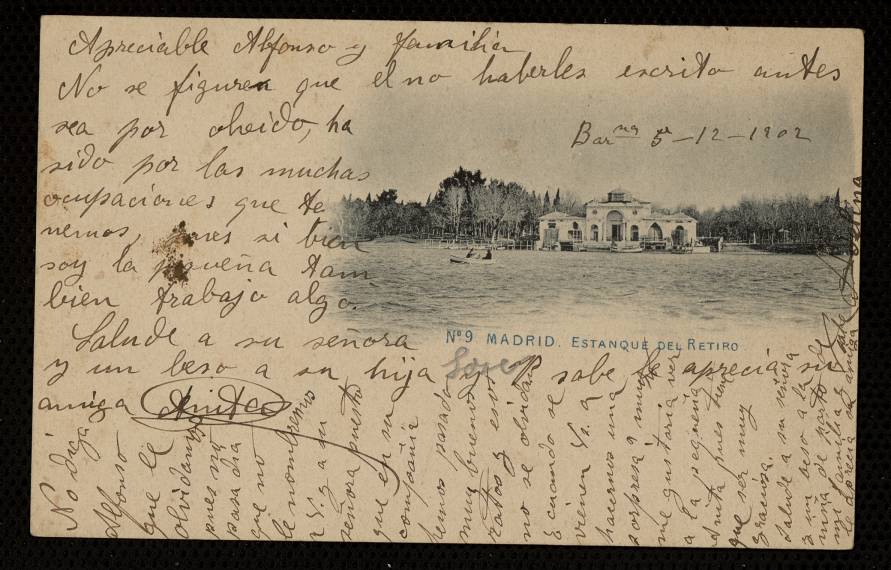 Apreciable Alfonso y familia
No se figuren que el no haberles escrito antes
sea por olvido, ha
sido por las muchas
ocupaciones que te
nemos, pues si bien
soy la pequeña tam
bien trabajo algo.
Salude a su señora
y un beso a su hija y sabe apreciá su
amiga Anita
Barna 5-12-1902
Nº 9 MADRID. ESTANQUE DEL RETIRO
No diga
Alfonso
que le
olvidamos
pues no
pasa dia
que no
le nombremos
a V. y a su
señora puesto
que en su
compañia
hemos pasado
muy buenos
ratos y esos
no se olvidan
cuando se
vienen Vs. a
hacernos una
sorpresa y mucho
me gustaria ver
a la pequeña
Anita pues tiene
que ser muy
graciosa.
Salude a su señora
y un beso a la
niña de parte de
mi familia y
le aprecia su amiga